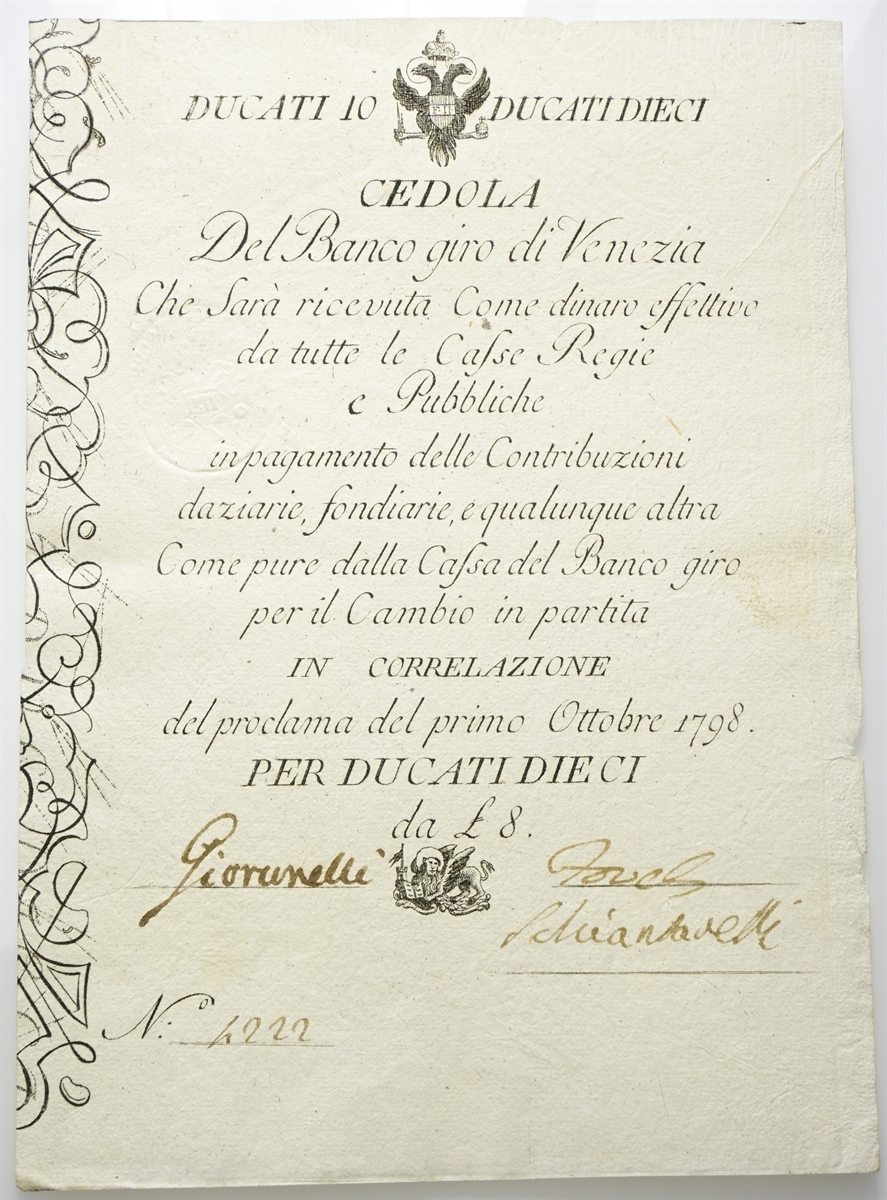 DUCATI 10 DUCATI DIECI
CEDOLA
Del Banco giro di Venezia
Che Sarà ricevuta Come dinaro effettivo
da tutte le Caſse Regie
e Pubbliche
in pagamento delle Contribuzioni
daziarie, fondiarie, e qualunque altra
Come pure dalla Caſsa del Banco giro
per il Cambio in partita
IN CORRELAZIONE
del proclama del primo Ottobre 1798.
PER DUCATI DIECI
da £ 8.
N:º 4222